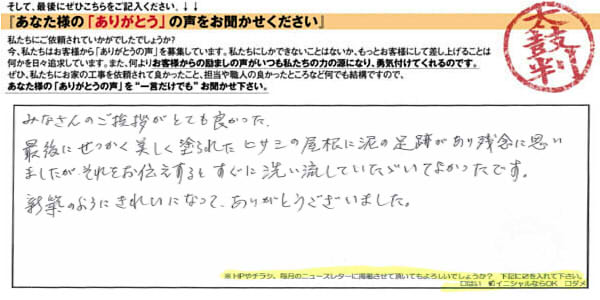 そして、最後にぜひこちらをご記入ください．↓↓
『あなた様の「ありがとう」の声をお聞かせください』
私たちにご依頼されていかがでしたでしょうか?
今、私たちはお客様から「ありがとうの声」を募集しています。私たちにしかできないことはないか、もっとお客様にして差し上げることは
何かを日々追求しています。また、何よりお客様からの励ましの声がいつも私たちの力の源になり、勇気付けてくれるのです。
ぜひ、私たちにお家の工事を依頼されて良かったこと、担当や職人の良かったところなど何でも結構ですので、
あなた様の「ありがとうの声」を“一言だけでも”お聞かせ下さい。
太鼓判
みなさんのご挨拶がとても良かった.
最後にせっかく美しく塗られたヒサシの屋根に泥の足跡があり残念に思い
ましたが、それをお伝えするとすぐに洗い流していただいてよかったです。
新築のようにきれいになって、ありがとうございました。
※HPやチラシ、毎月のニュースレターに掲載させて頂いてもよろしいでしょうか？ 下記に☑を入れて下さい。
□はい ☑イニシャルならOK □ダメ